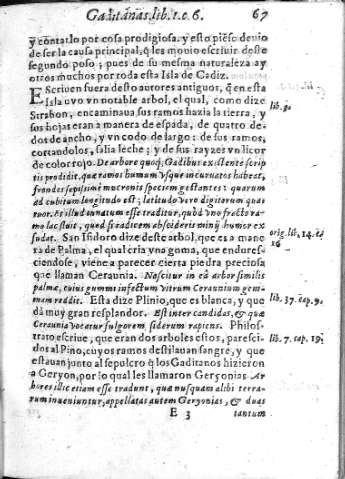 Gaditanas. lib. 1. c. 6. 67
y contarlo por cosa prodigiosa. y esto piẽse deuio
de ser la causa principal, q̃ les mouio escriuir deste
segundo poso; pues de su mesma naturaleza ay
otros muchos por toda esta Isla de Cadiz.
EScriuen fuera desto autores antiguos, q̃ en esta
Isla uvo vn notable arbol, el qual, como dize
Strabon, encaminaua sus ramos hazia la tierra, y
lib. 3.
sus hojas eran a manera de espada, de quatro de-
dos de ancho, y vn codo de largo: de sus ramos,
cortandolos, salia leche; y de sus rayzes vn licor
de color rojo. De arbore quoq; Gadibus existente scrip
tis prodidit. quæ ramos humum vsque incuruatos habeat,
frondes sepissime mucronis speciem gestantes: quarum
ad cubitum longitudo est; latitudo vero digitorum qua-
tuor. Et illud innatum esse traditur, quòd vno fracto ra-
mo lac fluit, quod si radicem abscideris minij humor ex
sudat. San Isidoro dize deste arbol, que es a mane
orig. lib. 14. ca
ra de Palma, el qual cria vna goma, que endures-
ciendose; viene a parecer cierta piedra preciosa
que llaman Ceraunia. Nascitur in ea arbor similis
palmæ, cuius gummi infectum vitrum Ceraunium gem-
mam reddit. Esta dize Plinio, que es blanca, y que
lib. 37. cap. 9.
dà muy gran resplandor. Est inter candidas, & quæ
Ceraunia vocatur fulgorem siderum rapiens. Philos-
trato escriue, que eran dos arboles estos, paresci-
lib. 7. cap. 19.
dos al Pino, cuyos ramos destilauan sangre, y que
estauan junto al sepulcro q̃ los Gaditanos hizieron
a Geryon, por lo qual les llamaron Geryonias. Ar
bores illic etiam esse tradunt, quæ nusquam alibi terra-
rum inueniuntur, appellatas autem Geryonias, & duas
E 3 tantum